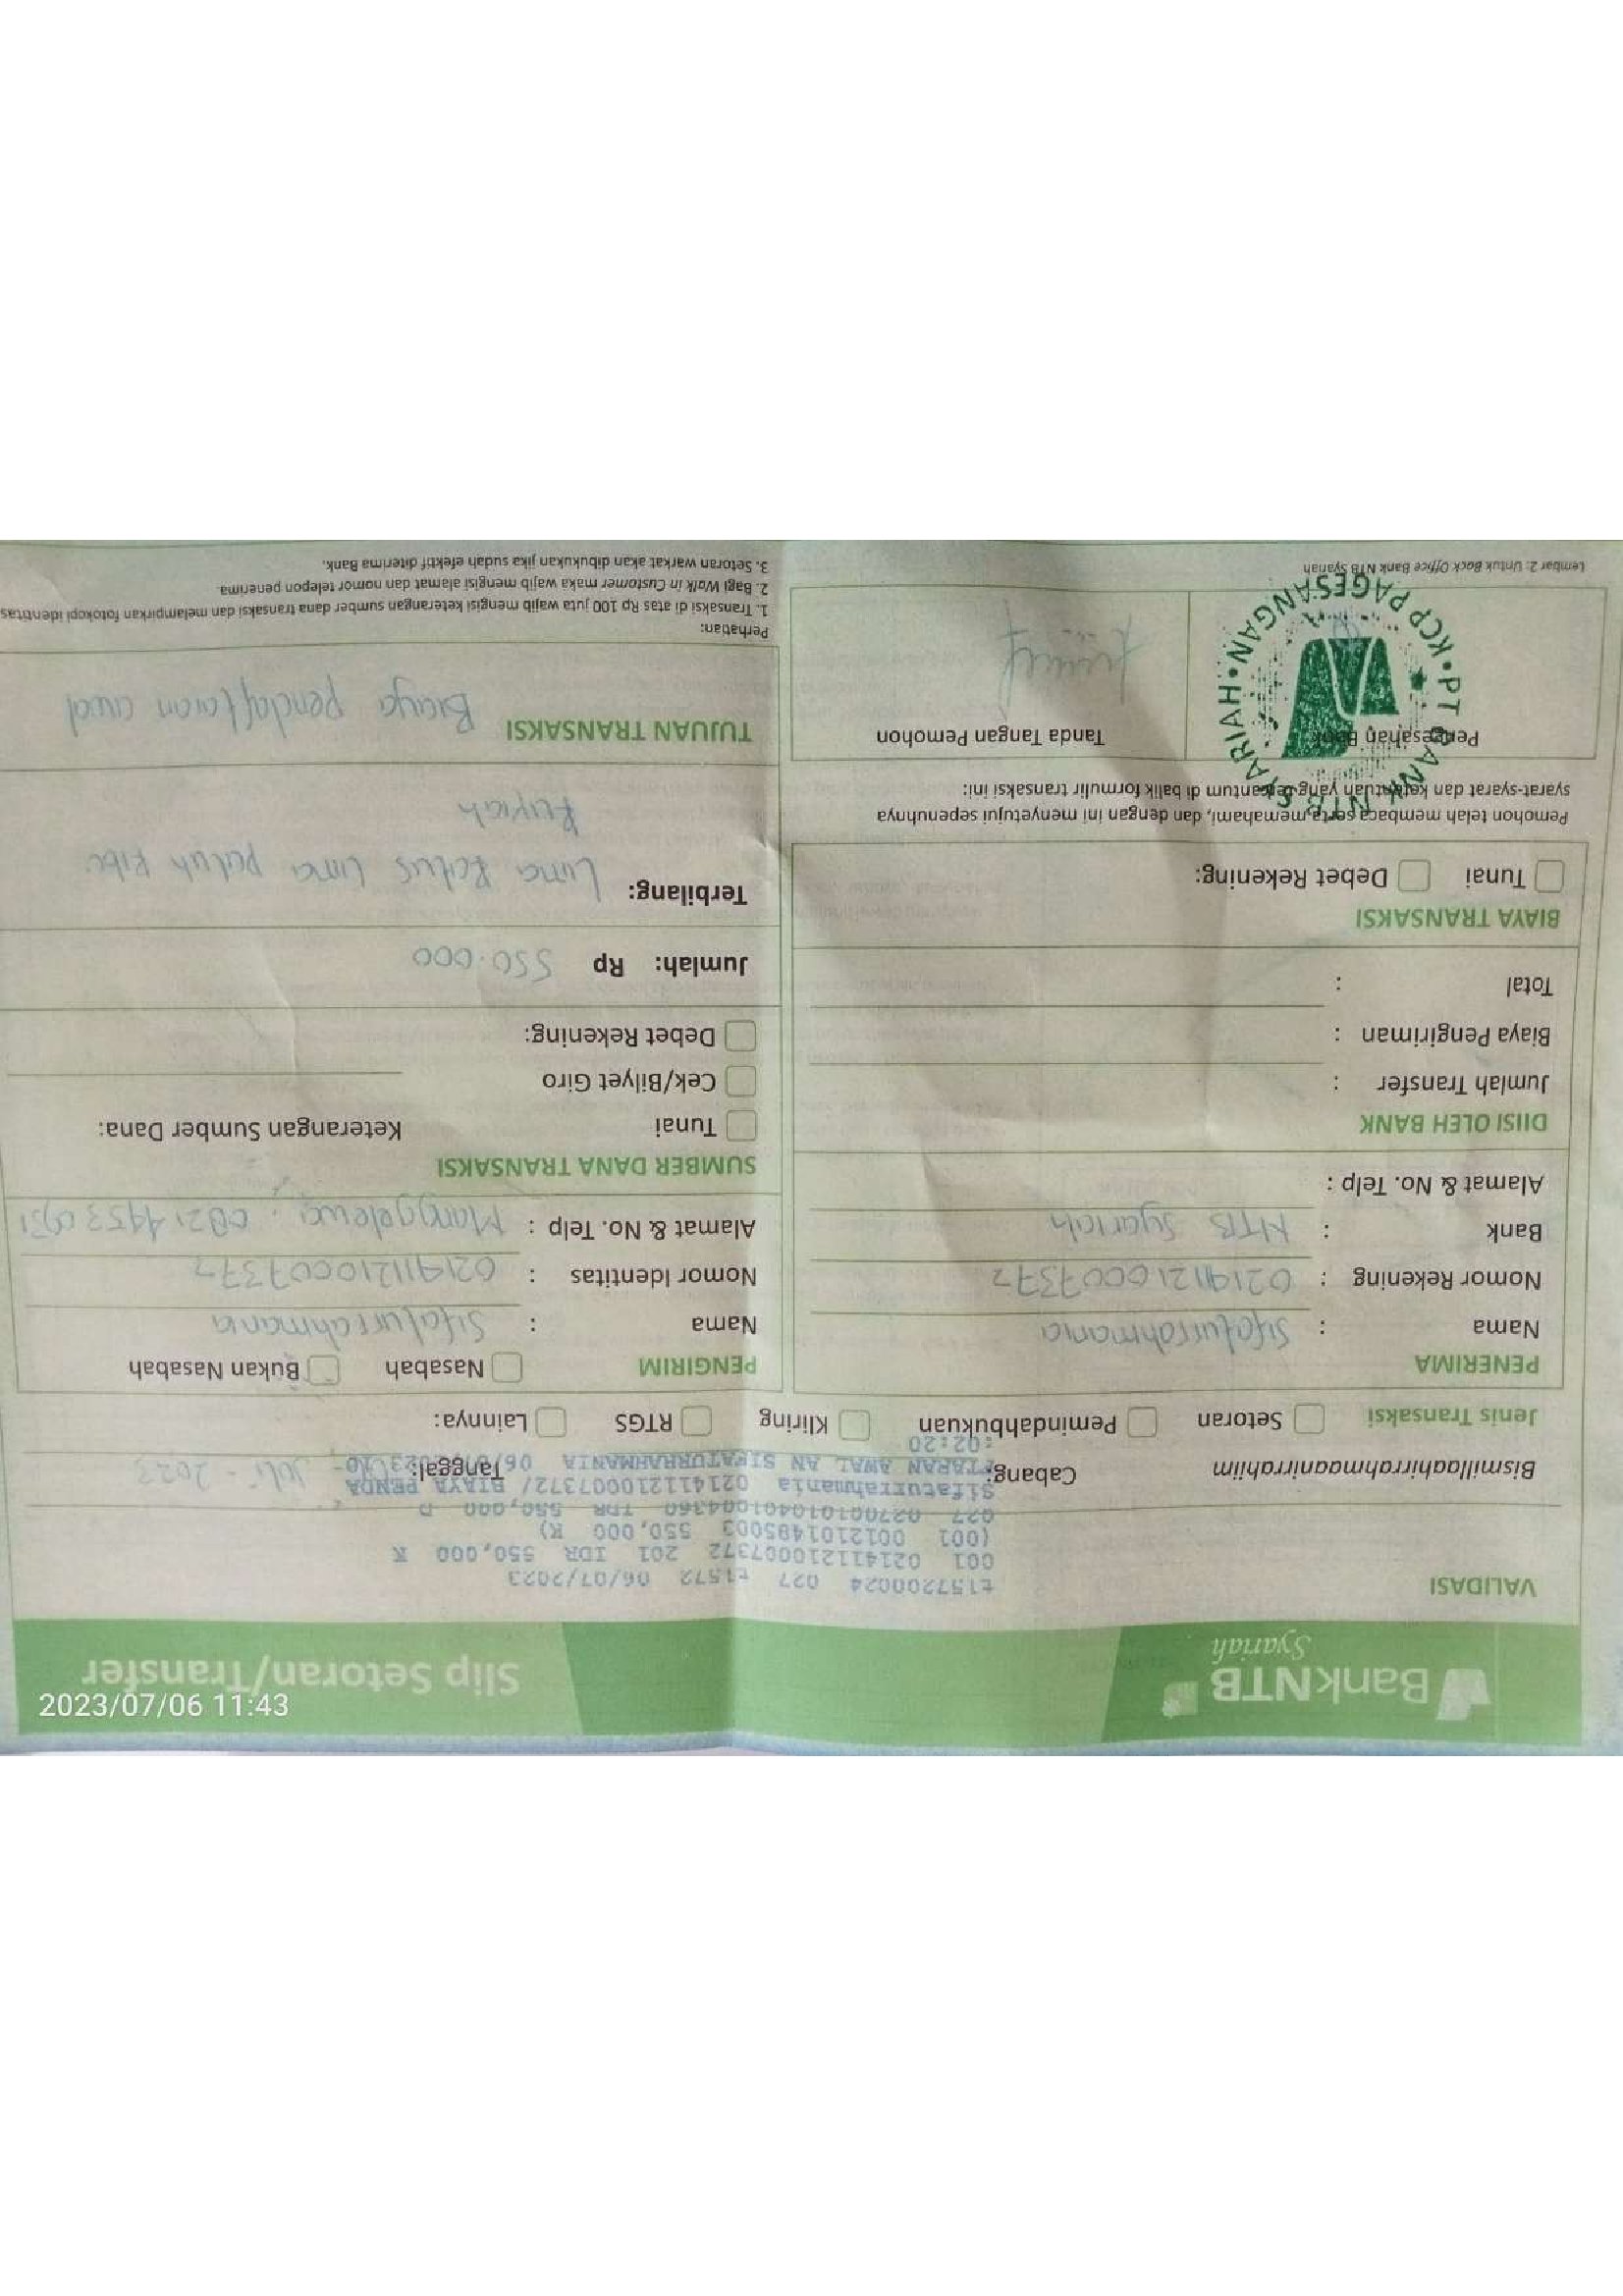 BankNTB
Syariah
Slip Setoran/Transfer
2023/07/06 11:43
VALIDASI
t157200024 027 t1572 06/07/2023
001 0214112100007372 201 IDR 550,000 K
(001 0012101485003 550,000 K)
027 027001010401004360 IDR 550,000 D
Sifaturrahmania 0214112100007372/ BIAYA PENDA
FTARAN AWAL AN SIFATURRAHMANIA
:02:20
Bismillaahirrahmaanirrahiim
Cabang:
Tanggal: Juli - 2023
Jenis Transaksi Setoran Pemindahbukuan Kliring RTGS Lainnya:
PENERIMA
Nama : Sifaturrahmania
Nomor Rekening :
Bank : NTB Syariah
Alamat & No. Telp :
DIISI OLEH BANK
Jumlah Transfer :
Biaya Pengiriman :
Total :
BIAYA TRANSAKSI
Tunai Debet Rekening:
Pemohon telah membaca serta memahami, dan dengan ini menyetujui sepenuhnya
syarat-syarat dan ketentuan yang tercantum di balik formulir transaksi ini:
Pengesahan Bank
Tanda Tangan Pemohon
PT BANK NTB SYARIAH • KCP PAGESANGAN •
Lembar 2: Untuk Back Office Bank NTB Syariah
PENGIRIM Nasabah Bukan Nasabah
Nama : Sifaturrahmania
Nomor Identitas :
Alamat & No. Telp : Manggelewa,
SUMBER DANA TRANSAKSI
Tunai
Keterangan Sumber Dana:
Cek/Bilyet Giro
Debet Rekening:
Jumlah: Rp 550.000
Terbilang: Lima Ratus Lima puluh Ribu
Rupiah
TUJUAN TRANSAKSI Biaya pendaftaran awal
Perhatian:
1. Transaksi di atas Rp 100 juta wajib mengisi keterangan sumber dana transaksi dan melampirkan fotokopi identitas
2. Bagi Walk in Customer maka wajib mengisi alamat dan nomor telepon penerima
3. Setoran warkat akan dibukukan jika sudah efektif diterima Bank.